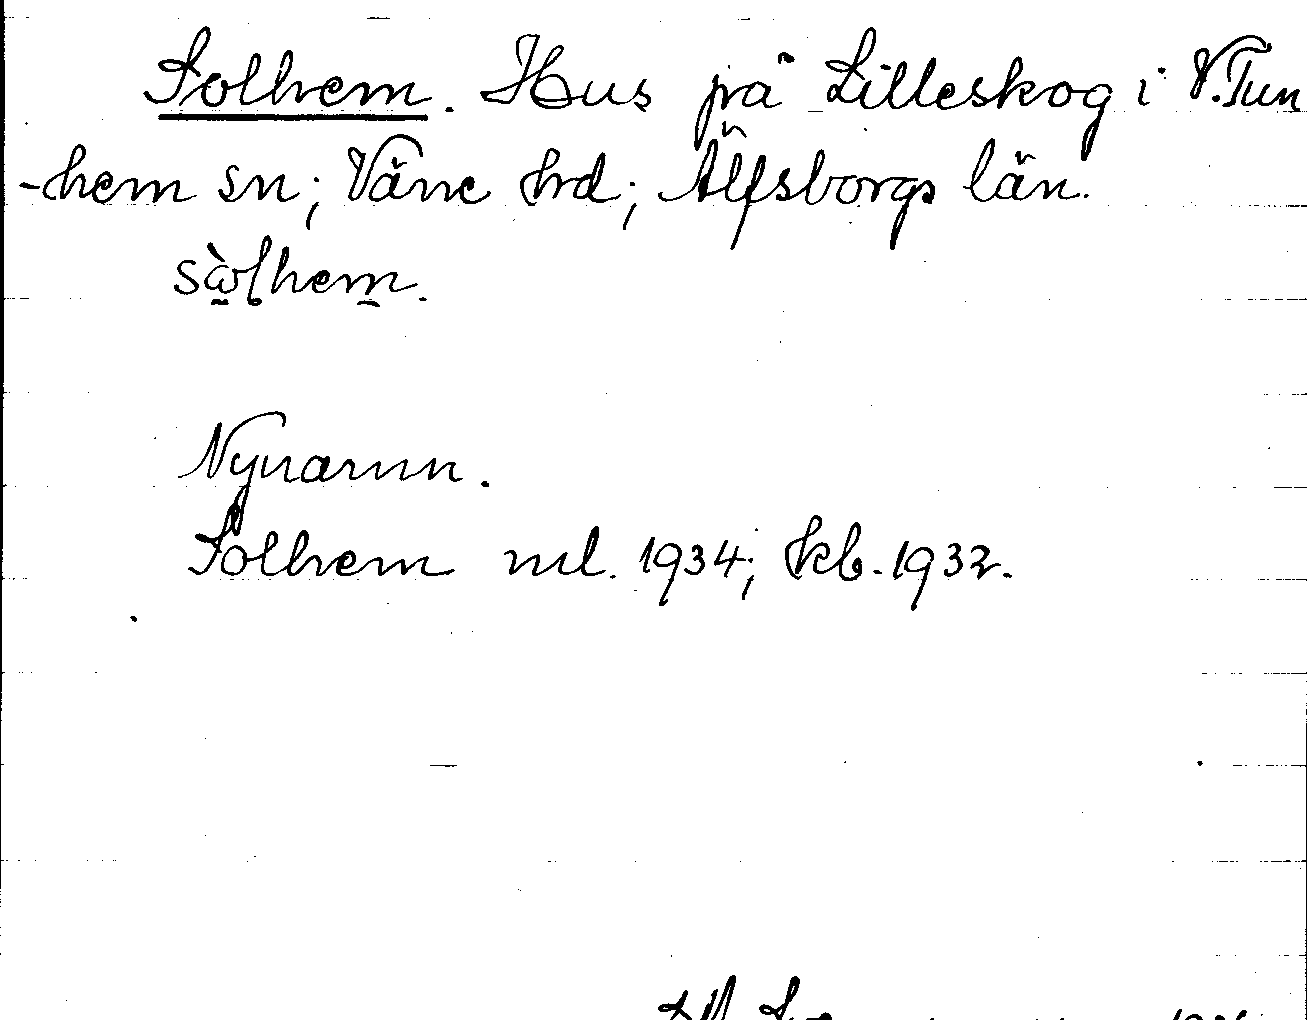 Solhem. Hus på Lilleskog i V. Tun
-hem sn; Väne hd; Älfsborgs län.
sὼlhem.
Nynamn.
Solhem ml. 1934; kb. 1932.